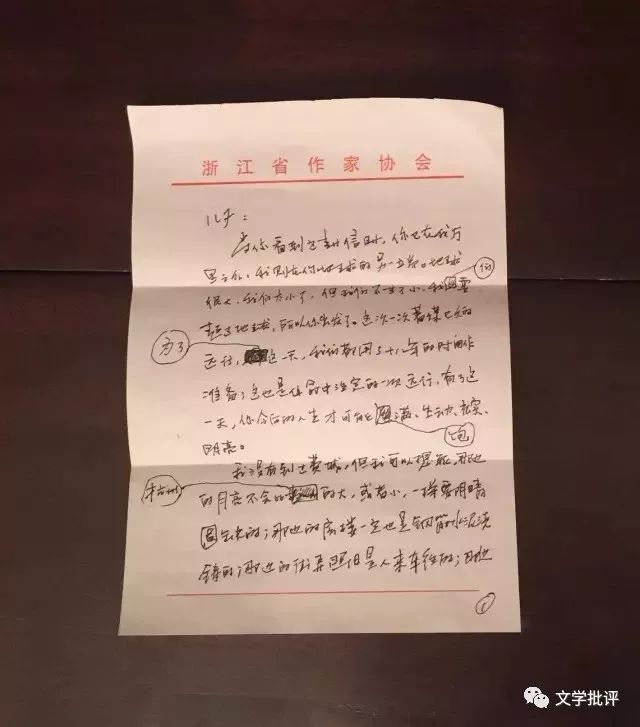 浙江省作家协会
儿子:
当你看到这封信时,你已在我万
里之外,我则在你地球的另一端。地球
很大,我们太小了,但我们不甘于小,我们要
超过地球,所以你出发了。这是一次蓄谋已久的
远行,为了这一天,我们都用了十八年的时间作
准备;这也是你命中注定的一次远行,有了这
一天,你今后的人生才可能饱满、生动、充实、
明亮。
我没有到过费城,但我可以想象,那边
的月亮不会比杭州的大,或者小,一样要阴晴
圆缺的;那边的房楼一定也是钢筋水泥浇
铸的;那边的街弄照旧是人来车往的;那边
1
文学批评